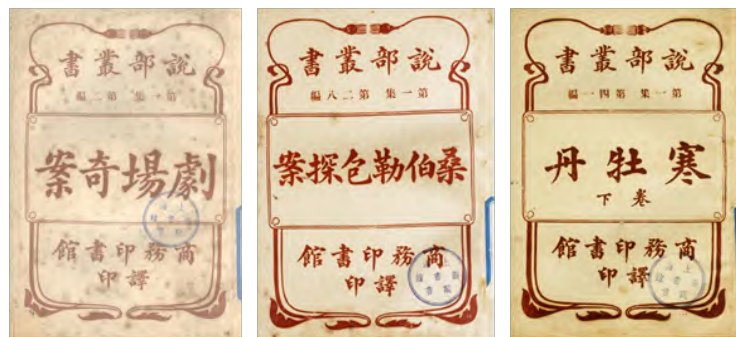 說部叢書
第一集 第二編
劇場奇案
商務印書館
譯印
說部叢書
第一集 第二八編
桑伯勒包探案
商務印書館
譯印
說部叢書
第一集 第四一編
寒牡丹
卷下
商務印書館
譯印